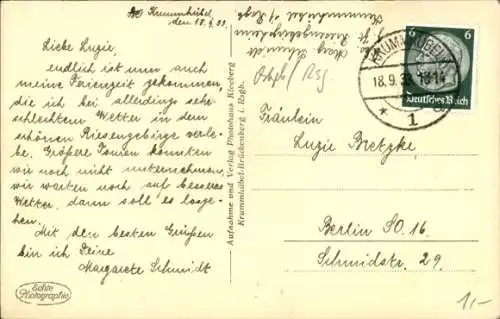 Krummhübel,
den 18.9.33.
Liebe Luzie,
endlich ist nun auch
meine Ferienzeit gekommen,
die ich bei allerdings sehr
schlechtem Wetter in dem
schönen Riesengebirge verle-
be. Größere Touren konnten
wir noch nicht unternehmen,
wir warten noch auf besseres
Wetter, dann soll es losge-
hen.
Mit den besten Grüßen
bin ich Deine
Margarete Schmidt
Echte
Photographie
Aufnahme und Verlag Photohaus Kleeberg
Krummhübel-Brückenberg i. Rsgb.
Marg. Schmidt
Krummhübel i. Rsgb.
KRUMMHÜBEL
18.9.33
1
6 6
Deutsches Reich
Fräulein
Luzie Bretzke,
Berlin SO. 16
Schmidstr. 29.
1,-